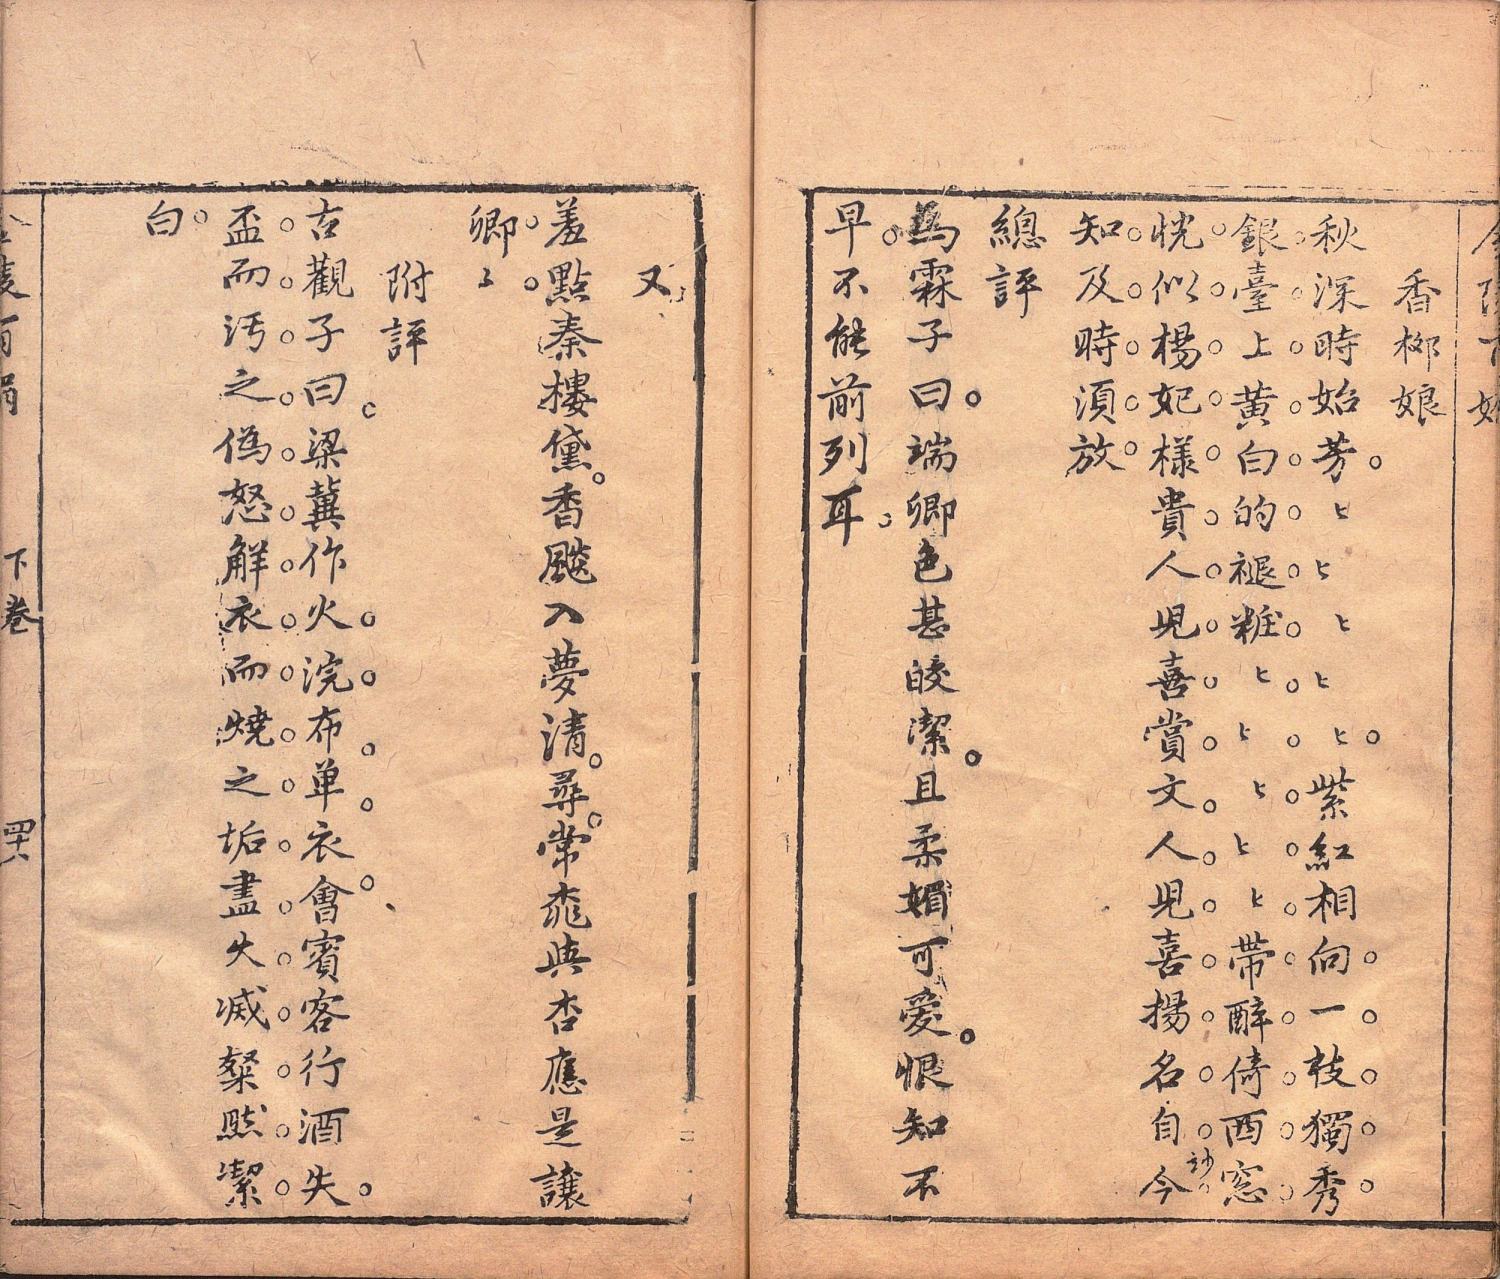 香柳娘
秋深時始芳〻〻〻〻〻紫紅相向一枝獨秀
銀臺上黄白的褪粧〻〻〻〻〻帶醉倚西窓
恍似楊妃様貴人児喜賞文人児喜揚名自今
妙
知及時須放
總評
為霖子曰端卿色甚皎潔且柔媚可愛恨知不
早不能前列耳
又
羞點秦樓黛香飈入夢清尋常桃與杏應是讓
卿〻
附評
古觀子曰梁冀作火浣布单衣會賓客行酒失
盃而汚之偽怒觧衣而燒之垢盡火滅粲然潔
白
下巻
四十六